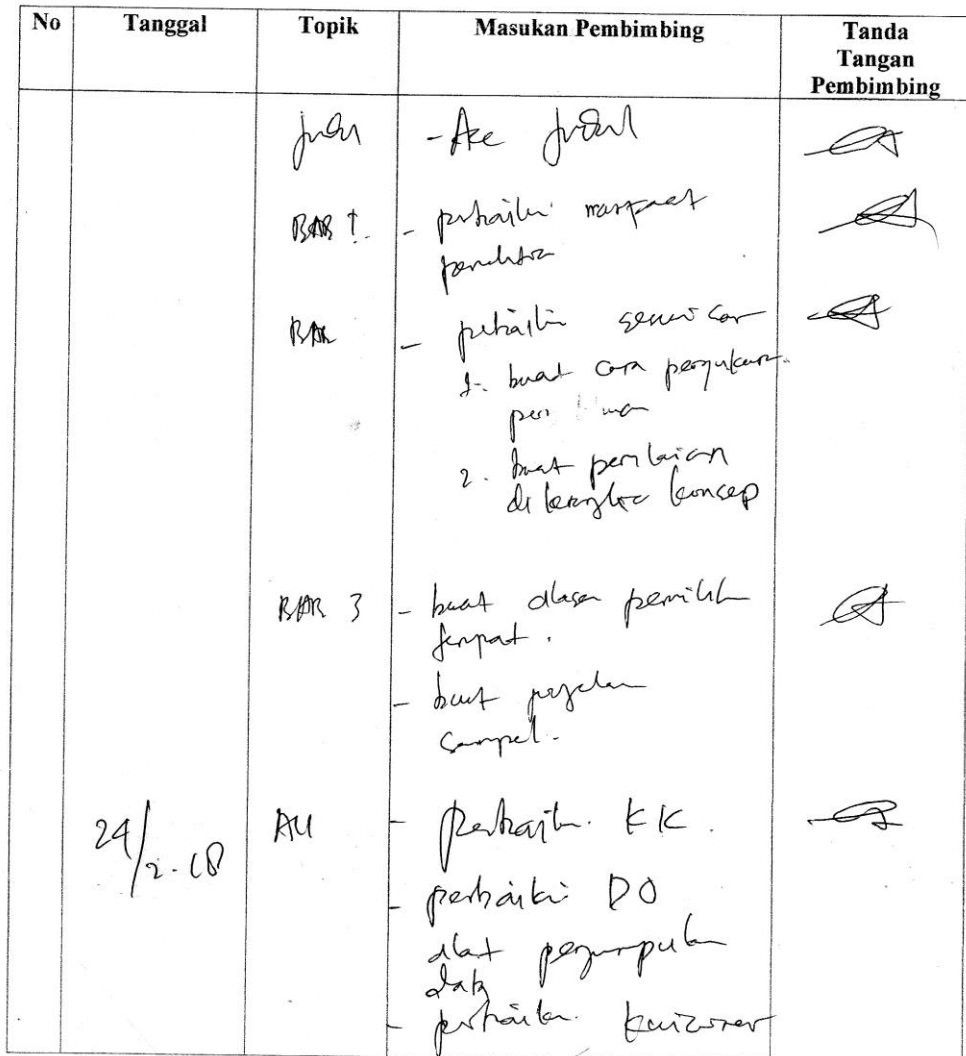 No Tanggal Topik Masukan Pembimbing Tanda Tangan Pembimbing
Judul - Acc Judul
BAB 1 - perbaiki manfaat
penelitian
BAB - perbaiki sesuai saran
1. buat cara pengukuran
2. buat penilaian
di kerangka konsep
BAB 3 - buat alasan pemilihan
tempat.
- buat
sampel.
24/2-18 All - Perbaiki KK.
- perbaiki DO
alat pengumpulan
data
- perbaiki kuizoner